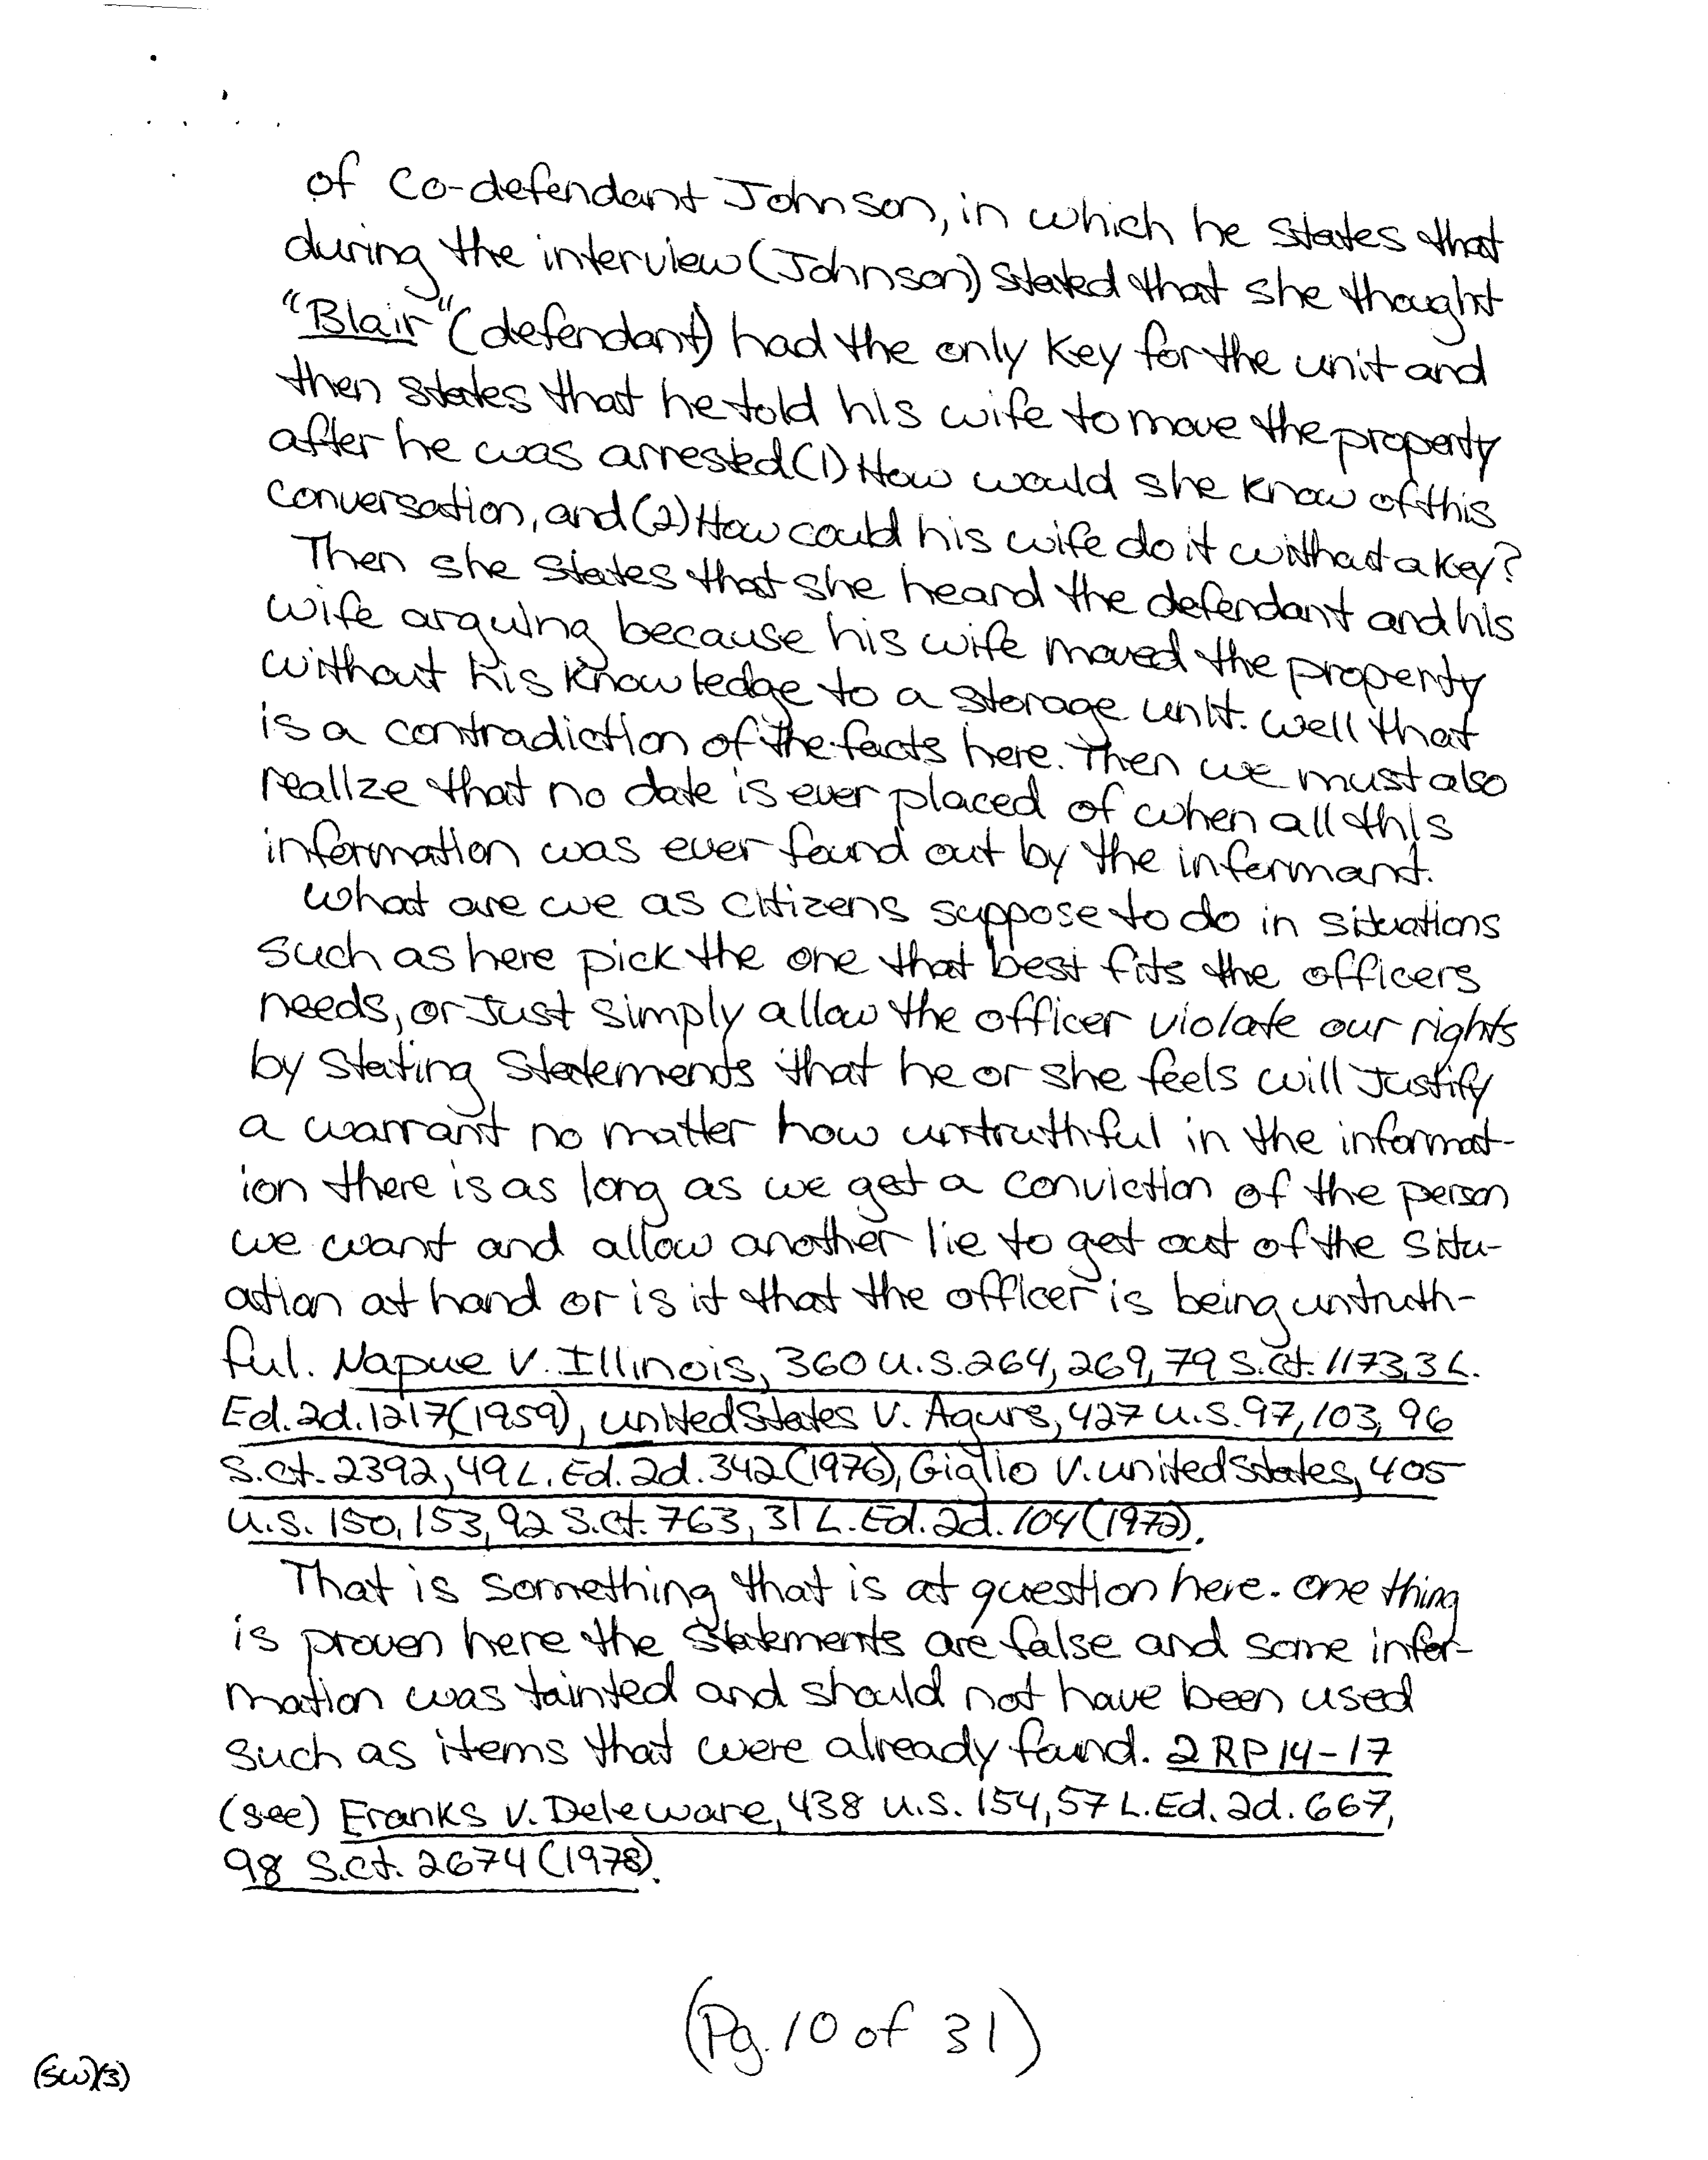 of Co-defendant Johnson, in which he states that
during the interview (Johnson) stated that she thought
"Blair" (defendant) had the only key for the unit and
then states that he told his wife to move the property
after he was arrested (1) How would she know of this
conversation, and (2) How could his wife do it without a key?
Then she states that she heard the defendant and his
wife arguing because his wife moved the property
without his knowledge to a storage unit. Well that
is a contradiction of the facts here. Then we must also
realize that no date is ever placed of when all this
information was ever found out by the informant.
What are we as citizens suppose to do in situations
such as here pick the one that best fits the officers
needs, or Just simply allow the officer violate our rights
by stating statements that he or she feels will Justify
a warrant no matter how untruthful in the informat-
ion there is as long as we get a conviction of the person
we want and allow another lie to get out of the situ-
ation at hand or is it that the officer is being untruth-
ful. Napue v. Illinois, 360 U.S. 264, 269, 79 S.Ct. 1173, 3 L.
Ed. 2d. 1217 (1959), United States v. Agurs, 427 U.S. 97, 103, 96
S.Ct. 2392, 49 L. Ed. 2d. 342 (1976), Giglio v. United States, 405
U.S. 150, 153, 92 S.Ct. 763, 31 L. Ed. 2d. 104 (1972).
That is something that is at question here. One thing
is proven here the statements are false and some infor-
mation was tainted and should not have been used
such as items that were already found. 2 RP 14-17
(see) Franks v. Deleware, 438 U.S. 154, 57 L. Ed. 2d. 667,
98 S.Ct. 2674 (1978).
(Pg. 10 of 31)
(SW)(3)